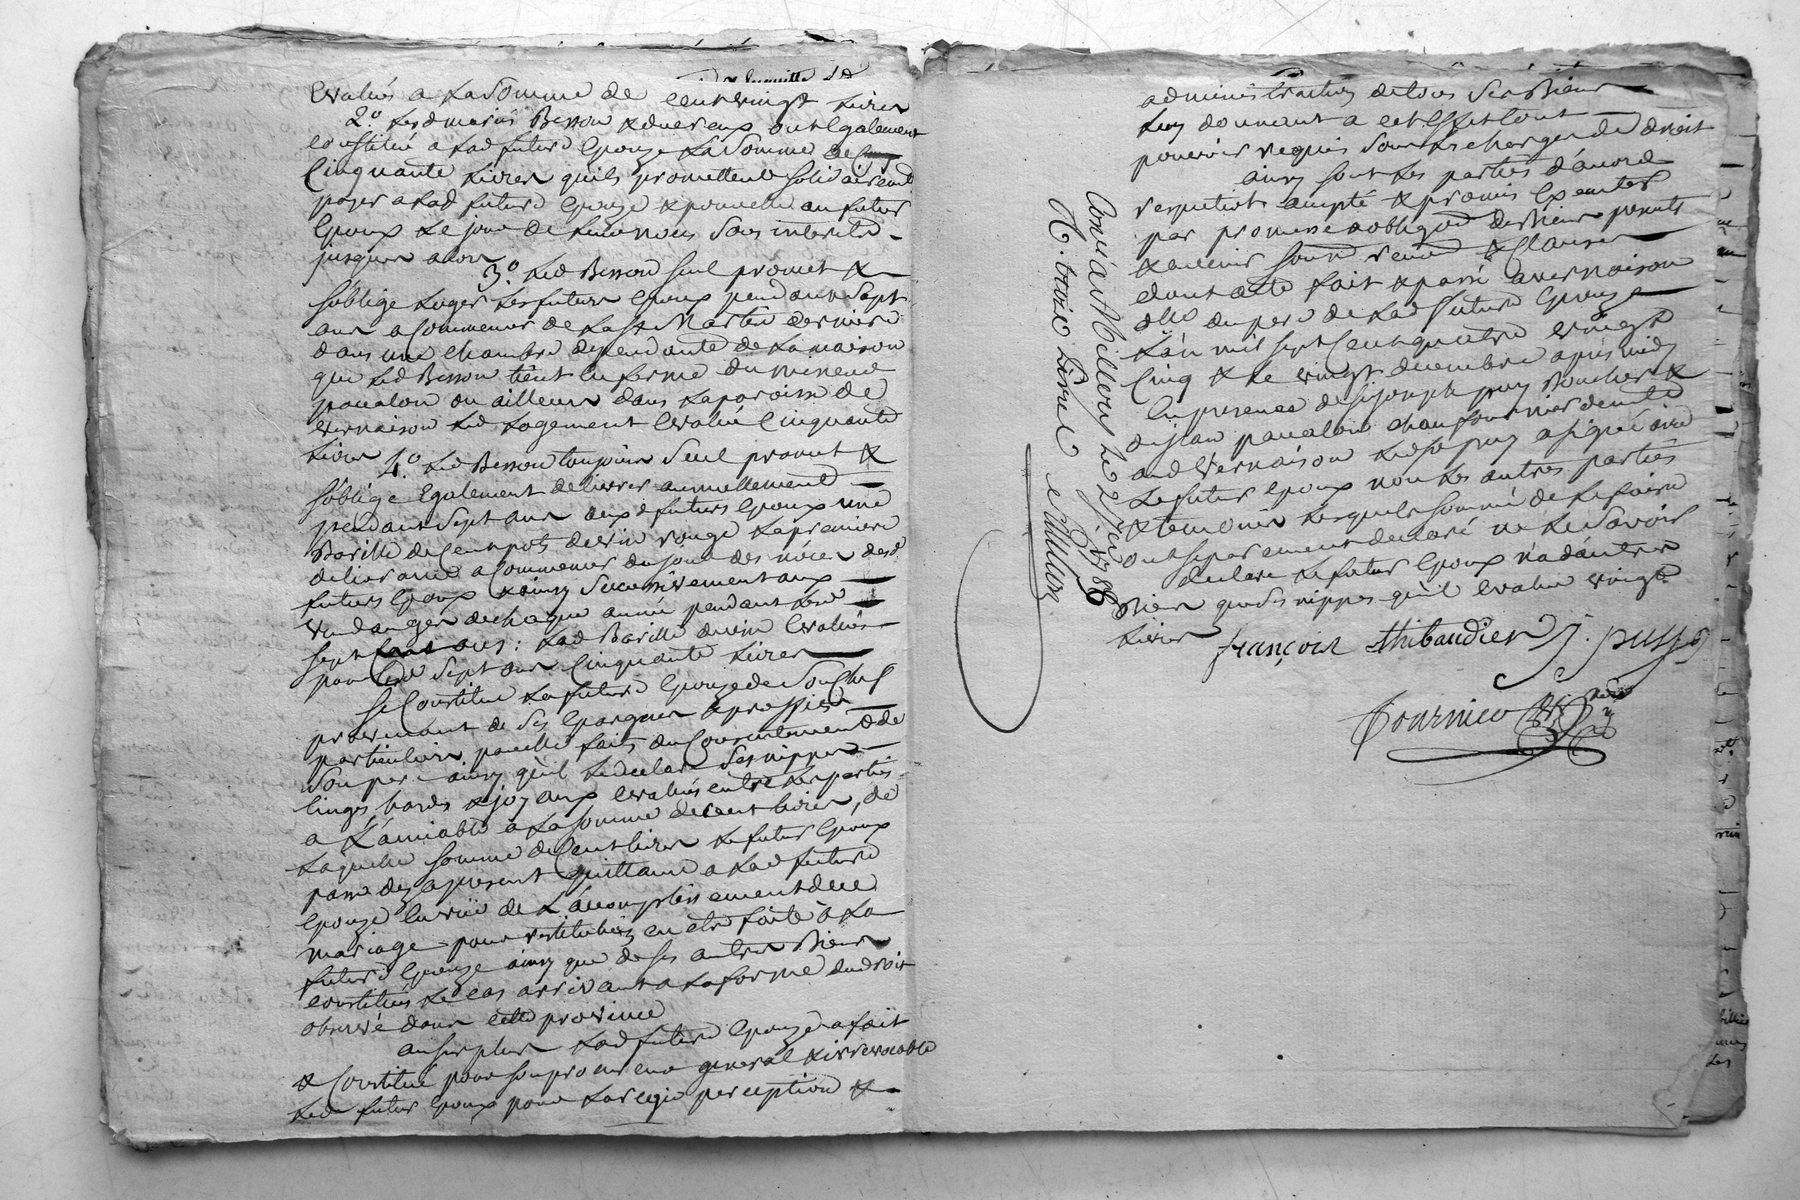 Evalués a La Somme de cent vingt Livres
2.° Lesd mariés Besson & duereux ont Egalement
constitué a Lad future Epouze La Somme de
Cinquante Livres quils promettent solidairement
payer a Lad future Epouze & pour elle au futur
Epoux Le jour de Leurs noces Sans interets
jusques alors
3.° Led Besson seul promet &
s'oblige Loger Les futurs Epoux pendant Sept
ans a Commencer de La St Martin derniere
dans une chambre dependante de La maison
que Led Besson tient en ferme du
ou ailleurs dans La paroisse de
vernaison Led Logement Evalué Cinquante
Livres
4.° Led Besson toujours Seul promet &
s'oblige Egalement delivrer annuellement
pendant Sept ans auxd futurs Epoux une
Barille de Cent pots de vin rouge La premiere
delivrance a Commencer du jour des nôces desd
futurs Epoux & ainsy Successivement aux
vendanges de chaque année pendant Lesd
sept ans : Lad Barille de vin Evaluée
pour Lesd Sept ans Cinquante Livres
Se Constitue La future Epouze de Son Chef
provenant de Ses Epargnes & proffits
particuliers par elle faits du Consentement de
Son pere ainsy qu'il Le declare Ses nippes
linges hardes & joyaux Evalués entre Les parties
a L'amiable a La somme de cent livres, de
Laquelle somme de Cent livres Le futur Epoux
passe dez apresent quittance a Lad future
Epouze En vüe de L'accomplissement de ce
mariage pour restitution en etre faite à La
future Epouze ainsy que de Ses autres Biens
constitués Le cas arrivant a La forme du droit
observé dans cette province
au surplus Lad future Epouze a fait
& Constitué pour son procureur general & irrevocable
Led futur Epoux pour La regie perception &
administration de tous Ses Biens
Luy donnant a cet Effet tout
pouvoir requis Sous Les charges de droit
ainsy sont Les parties d'accord
respectivt accepté & promis Executer
par promesse obligaon de Biens presents
& avenir soumn renon & Clauses
dont acte fait & passé a vernaison
dlle du pere de Lad future Epouze
L'an mil sept Cent quatre vingt
Cinq & Le vingt decembre après midy
En presence de Sr joseph puy Boucher &
de jean chaufournier demt
aud vernaison Led Sr puy a signé avec
Le futur Epoux non Les autres parties
& temoins Lesquels sommé de Le faire
ont separement declaré ne Le Savoir
declare Le futur Epoux n'a d'autres
Biens que Ses nippes qu'il Evalue vingt
Livres
françois thibaudier J. puy
Tournieu
Con.é à Millery Le 2 jer 1786
R. treize Livres